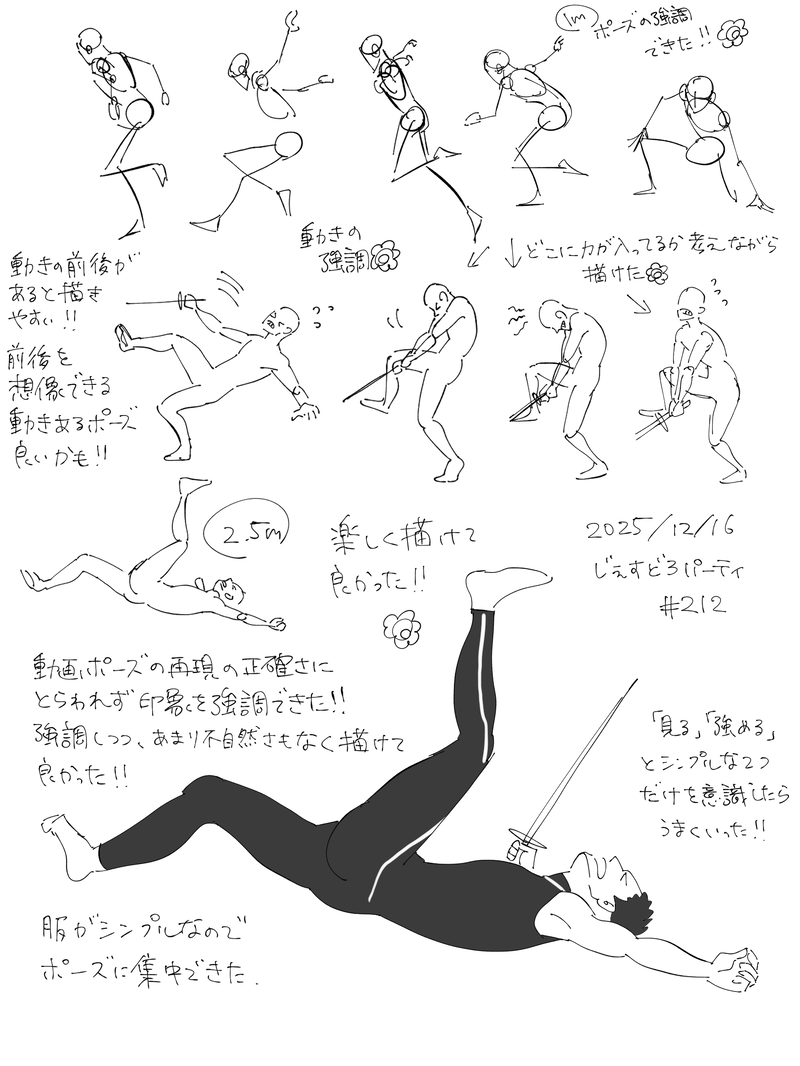 1m
ポーズの強調
できた!!
動きの
強調
どこに力が入ってるか考えながら
描けた
動きの前後が
あると描き
やすい!!
前後を
想像できる
動きあるポーズ
良いかも!!
2.5m
楽しく描けて
良かった!!
2025/12/16
じぇすどろパーティ
#212
動画、ポーズの再現の正確さに
とらわれず印象を強調できた!!
強調しつつ、あまり不自然さもなく描けて
良かった!!
「見る」「強める」
とシンプルな2つ
だけを意識したら
うまくいった!!
服がシンプルなので
ポーズに集中できた.